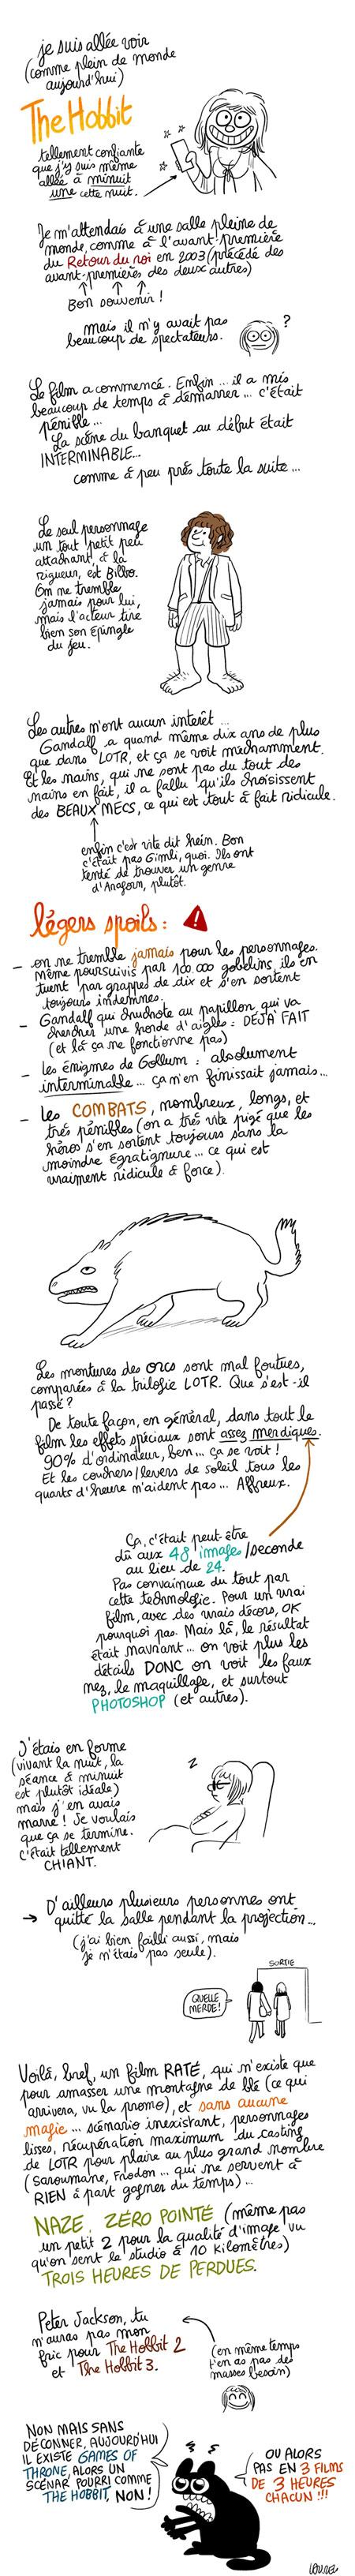 je suis allée voir
(comme plein de monde
aujourd'hui)
The Hobbit
tellement confiante
que j'y suis même
allée à minuit
une cette nuit.
Je m'attendais à une salle pleine de
monde, comme à l'avant-première
du Retour du roi en 2003 (précédé des
avant-premières des deux autres)
Bon souvenir !
mais il n'y avait pas
beaucoup de spectateurs.
?
Le film a commencé. Enfin... il a mis
beaucoup de temps à démarrer... c'était
pénible...
La scène du banquet au début était
INTERMINABLE...
comme à peu près toute la suite...
Le seul personnage
un tout petit peu
attachant, à la
rigueur, est Bilbo.
On ne tremble
jamais pour lui,
mais l'acteur tire
bien son épingle
du jeu.
Les autres n'ont aucun intérêt...
Gandalf a quand même dix ans de plus
que dans LOTR, et ça se voit méchamment.
Et les nains, qui ne sont pas du tout des
nains en fait, il a fallu qu'ils choisissent
des BEAUX MECS, ce qui est tout à fait ridicule.
enfin c'est vite dit hein. Bon
c'était pas Gimli, quoi. Ils ont
tenté de trouver un genre
d'Aragorn, plutôt.
légers spoils :
- on ne tremble jamais pour les personnages.
Même poursuivis par 100.000 gobelins, ils en
tuent par grappes de dix et s'en sortent
toujours indemnes.
- Gandalf qui chuchote au papillon qui va
chercher une horde d'aigles : DEJÀ FAIT
(et là ça ne fonctionne pas)
- les énigmes de Gollum : absolument
interminable... ça n'en finissait jamais...
- Les COMBATS, nombreux, longs, et
très pénibles (on a très vite pigé que les
héros s'en sortent toujours sans la
moindre égratignure... ce qui est
vraiment ridicule à force).
Les montures des orcs sont mal foutues,
comparées à la trilogie LOTR. Que s'est-il
passé ?
De toute façon, en général, dans tout le
film les effets spéciaux sont assez merdiques.
90% d'ordinateur, ben... ça se voit !
Et les couchers/levers de soleil tous les
quarts d'heure n'aident pas... Affreux.
Ça, c'était peut-être
dû aux 48 images/seconde
au lieu de 24.
Pas convaincue du tout par
cette technologie. Pour un vrai
film, avec des vrais décors, OK
pourquoi pas. Mais là, le résultat
était navrant... on voit plus les
détails DONC on voit les faux
nez, le maquillage, et surtout
PHOTOSHOP (et autres).
J'étais en forme
(vivant la nuit, la
séance à minuit
est plutôt idéale)
mais j'en avais
marre ! Je voulais
que ça se termine.
C'était tellement
CHIANT.
z
→ D'ailleurs plusieurs personnes ont
quitté la salle pendant la projection...
(j'ai bien failli aussi, mais
je n'étais pas seule).
SORTIE
QUELLE
MERDE !
Voilà, bref, un film RATÉ, qui n'existe que
pour amasser une montagne de blé (ce qui
arrivera, vu la promo), et sans aucune
magie... scénario inexistant, personnages
lisses, récupération maximum du casting
de LOTR pour plaire au plus grand nombre
(Saroumane, Frodon... qui ne servent à
RIEN à part gagner du temps)...
NAZE. ZÉRO POINTÉ (même pas
un petit 2 pour la qualité d'image, vu
qu'on sent le studio à 10 kilomètres)
TROIS HEURES DE PERDUES.
Peter Jackson, tu
n'auras pas mon
fric pour The Hobbit 2
et The Hobbit 3.
(en même temps
t'en as pas des
masses besoin)
NON MAIS SANS
DÉCONNER, AUJOURD'HUI
IL EXISTE GAMES OF
THRONE, ALORS UN
SCÉNAR POURRI COMME
THE HOBBIT, NON !
OU ALORS
PAS EN 3 FILMS
DE 3 HEURES
CHACUN !!!
LAUREL